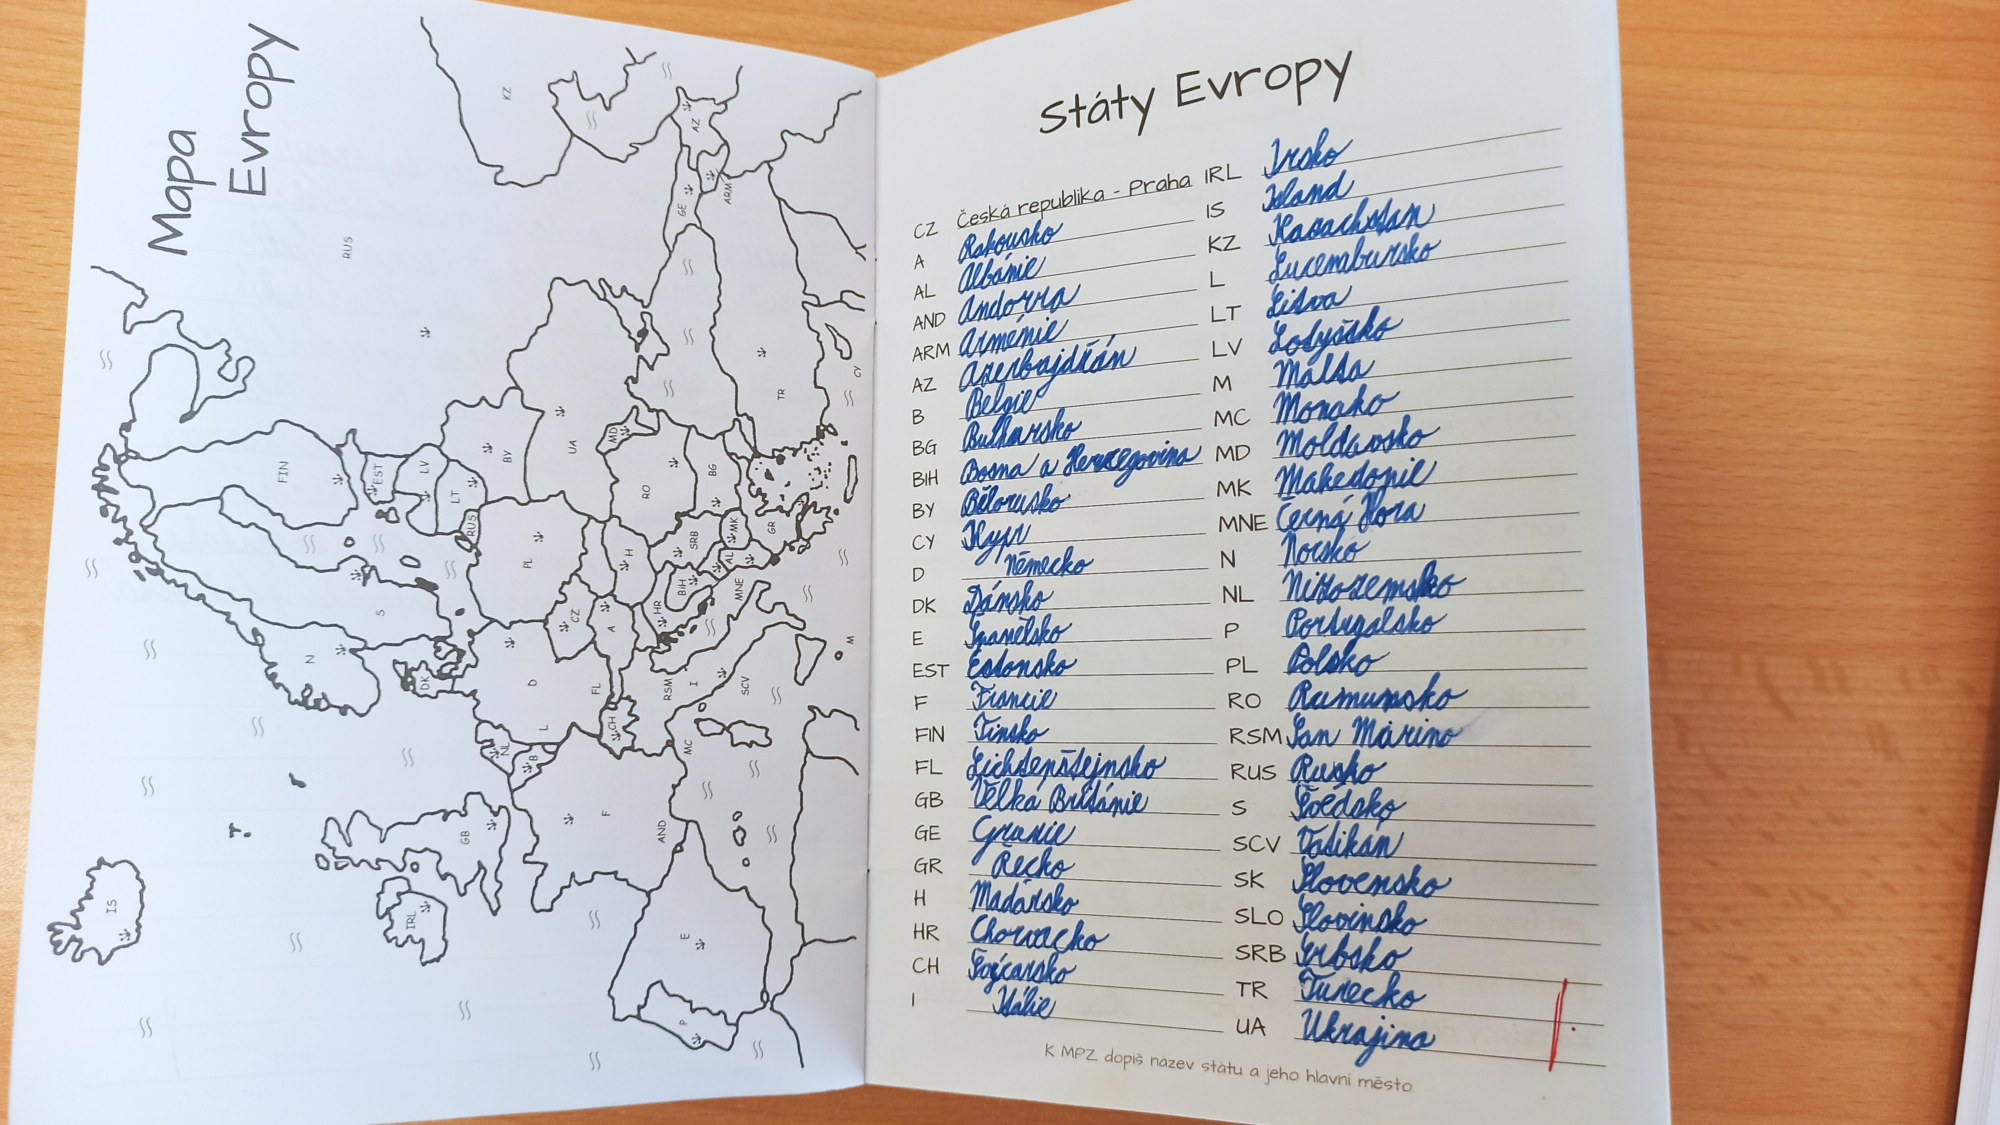 Mapa
Evropy
KZ
AZ
GE
ARM
RUS
CY
TR
FIN
EST
LV
LT
RUS
BY
UA
MD
RO
BG
S
N
PL
H
SRB
MK
GR
AL
BIH
MNE
HR
CZ
A
DK
D
FL
CH
RSM
I
SCV
M
L
NL
B
MC
GB
F
AND
IS
IRL
E
P
Státy Evropy
CZ Česká republika - Praha
A Rakousko
AL Albánie
AND Andorra
ARM Arménie
AZ Azerbajdžán
B Belgie
BG Bulharsko
BIH Bosna a Hercegovina
BY Bělorusko
CY Kypr
D Německo
DK Dánsko
E Španělsko
EST Estonsko
F Francie
FIN Finsko
FL Lichtenštejnsko
GB Velká Británie
GE Gruzie
GR Řecko
H Maďarsko
HR Chorvacko
CH Švýcarsko
I Itálie
IRL Irsko
IS Island
KZ Kazachstan
L Lucembursko
LT Litva
LV Lotyšsko
M Malta
MC Monako
MD Moldavsko
MK Makedonie
MNE Černá Hora
N Norsko
NL Nizozemsko
P Portugalsko
PL Polsko
RO Rumunsko
RSM San Marino
RUS Rusko
S Švédsko
SCV Vatikán
SK Slovensko
SLO Slovinsko
SRB Srbsko
TR Turecko
UA Ukrajina
K MPZ dopiš název státu a jeho hlavní město.